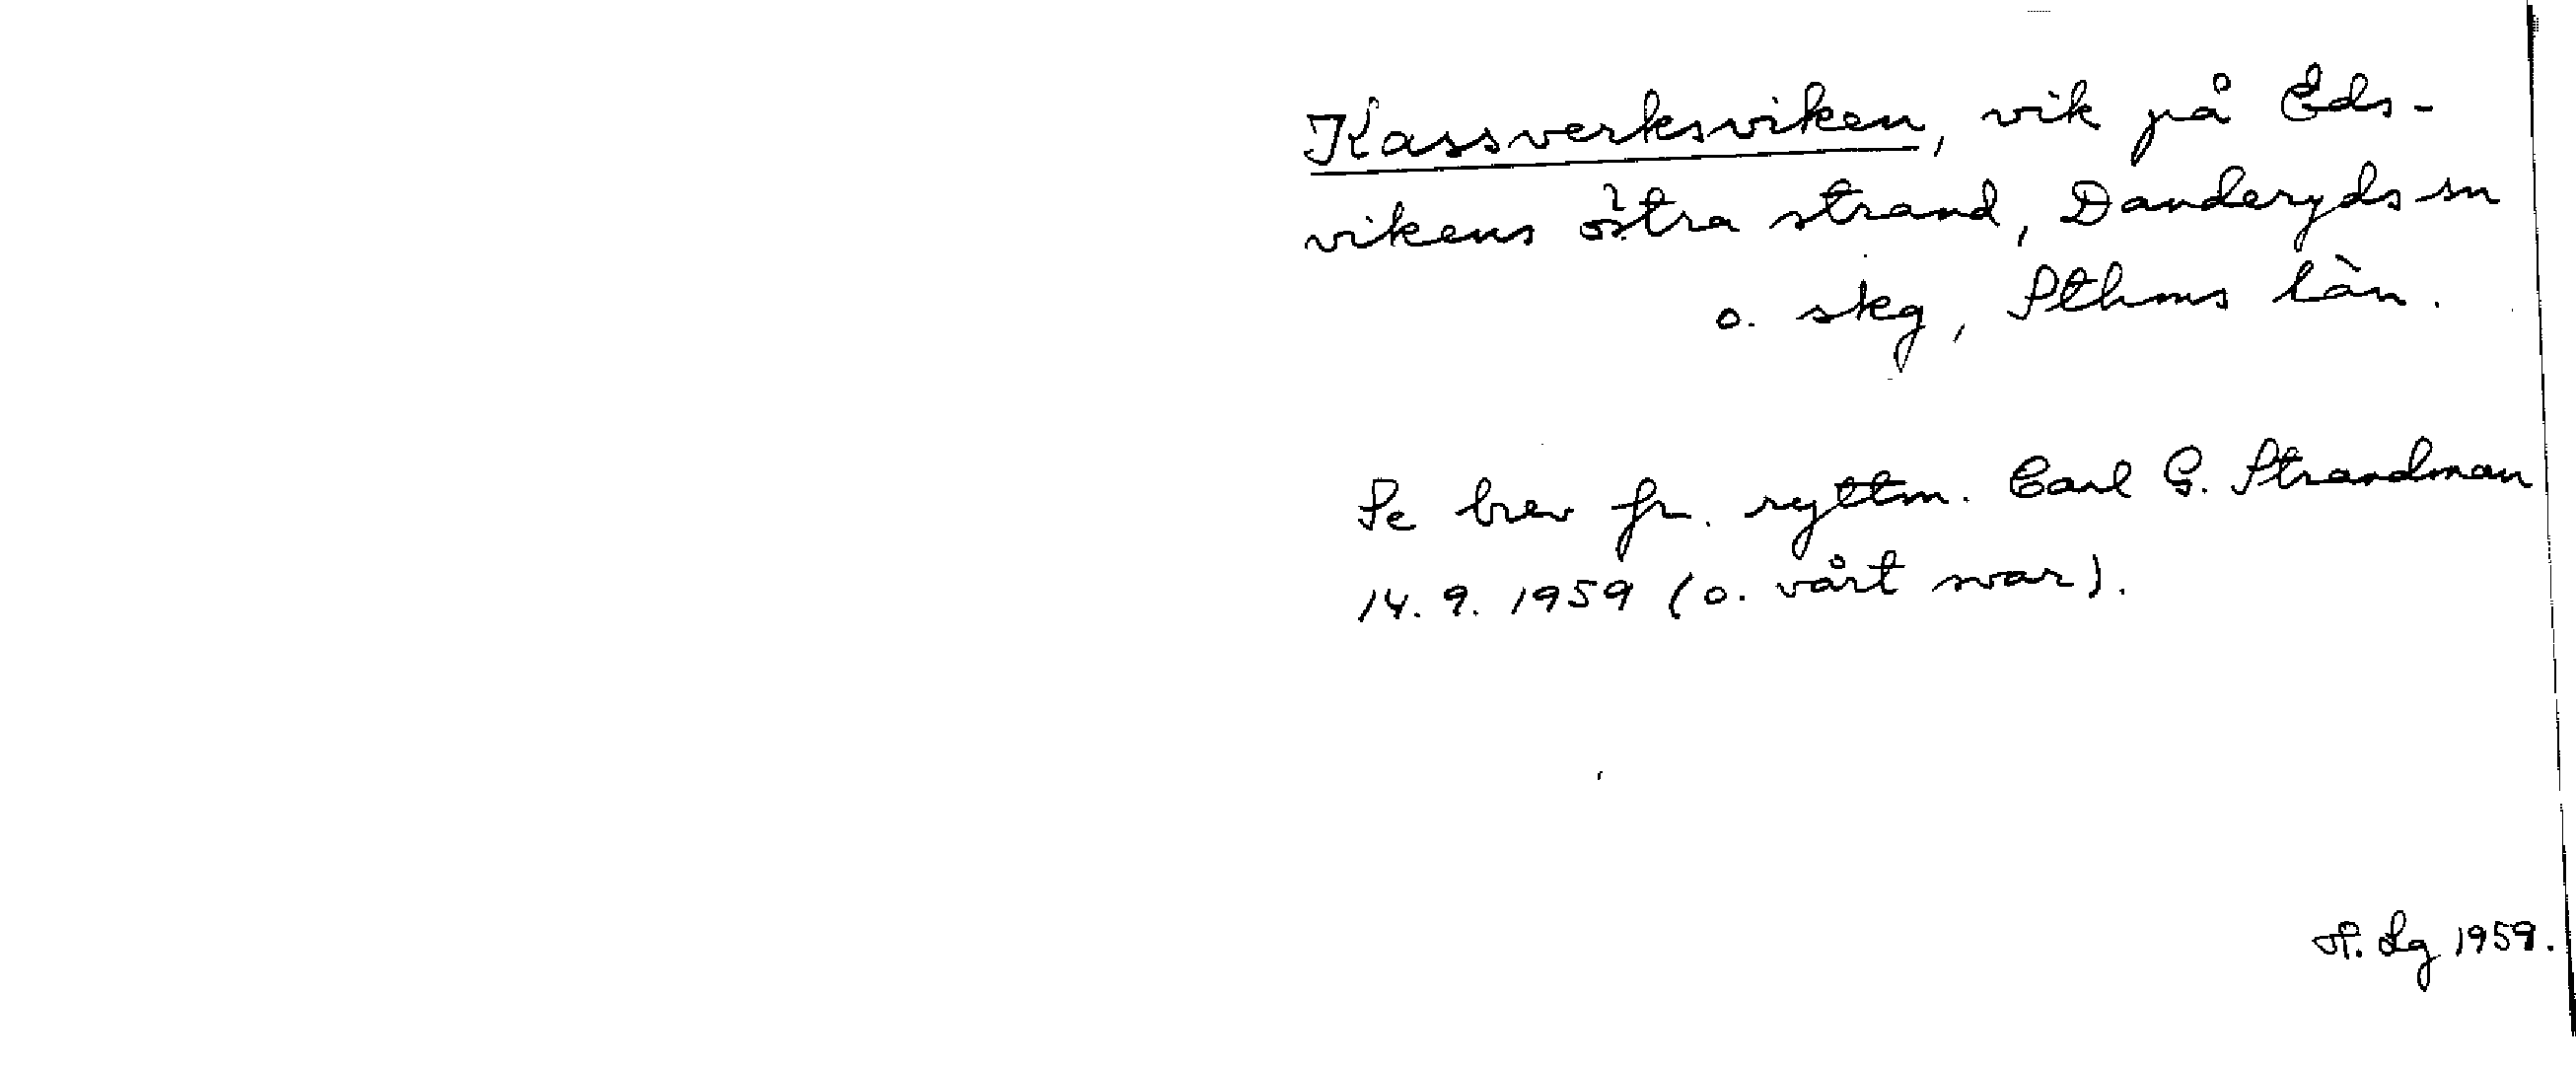 Kassverksviken, vik på Eds-
vikens östra strand, Danderyds sn
o. skg, Sthms län.
Se brev fr. ryttm. Carl G. Strandman
14.9.1959 (o. vårt svar).
Lg 1959.